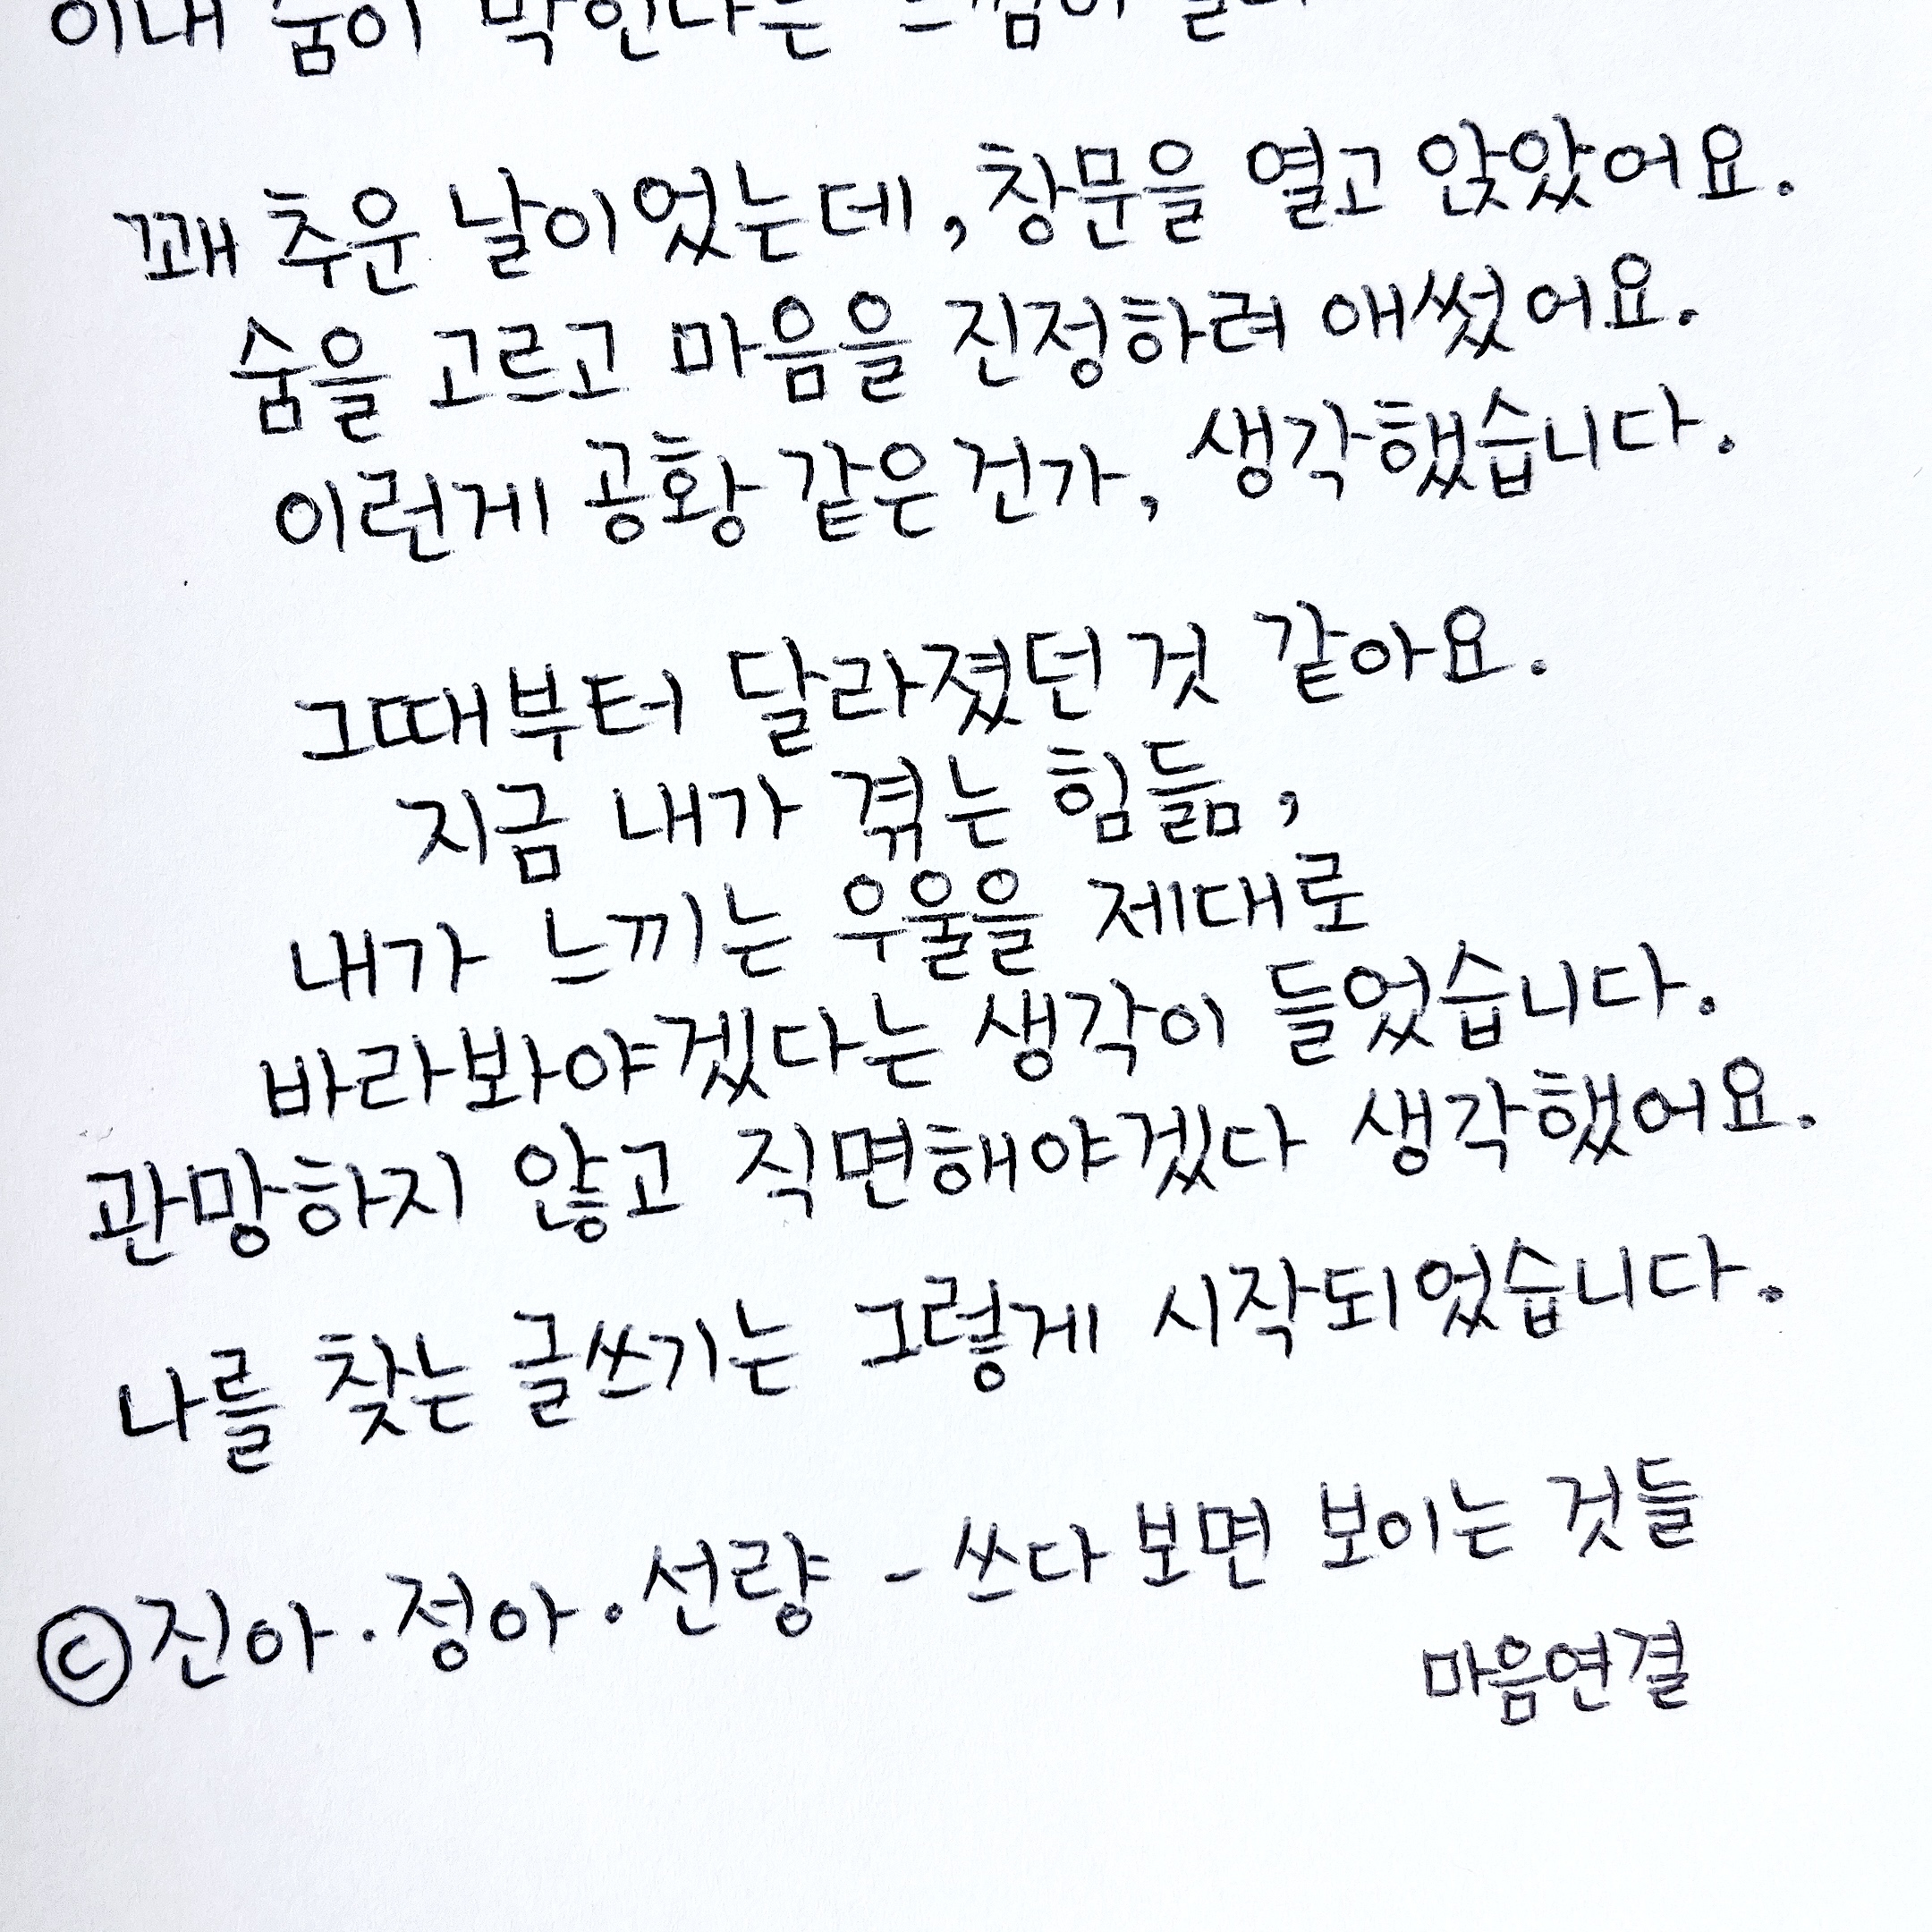 이내 숨이 막힌다는 느낌이
꽤 추운 날이었는데, 창문을 열고 앉았어요.
숨을 고르고 마음을 진정하려 애썼어요.
이런게 공황 같은건가, 생각했습니다.
그때부터 달라졌던 것 같아요.
지금 내가 겪는 힘듦,
내가 느끼는 우울을 제대로
바라봐야겠다는 생각이 들었습니다.
관망하지 않고 직면해야겠다 생각했어요.
나를 찾는 글쓰기는 그렇게 시작되었습니다.
ⓒ진아·정아·선량 - 쓰다 보면 보이는 것들
마음연결